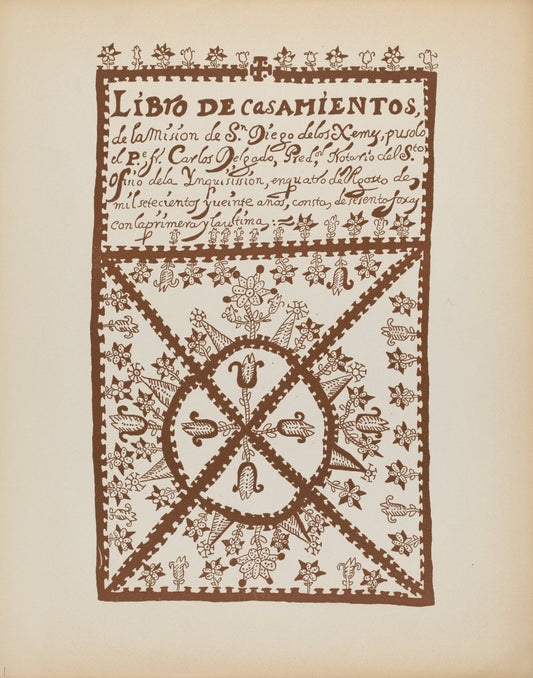 LiBro DE CaSAMIENTOS,
de la Mision de Sn Diego de los Xemes, pusolo
el Pe fr. Carlos Delgado, Predor Notario del Sto
Ofisio dela Ynquisission, enquatro de Agosto de
mil setecientos y ueinte años, consta, de sesenta foxas
con la primera y la ultima :